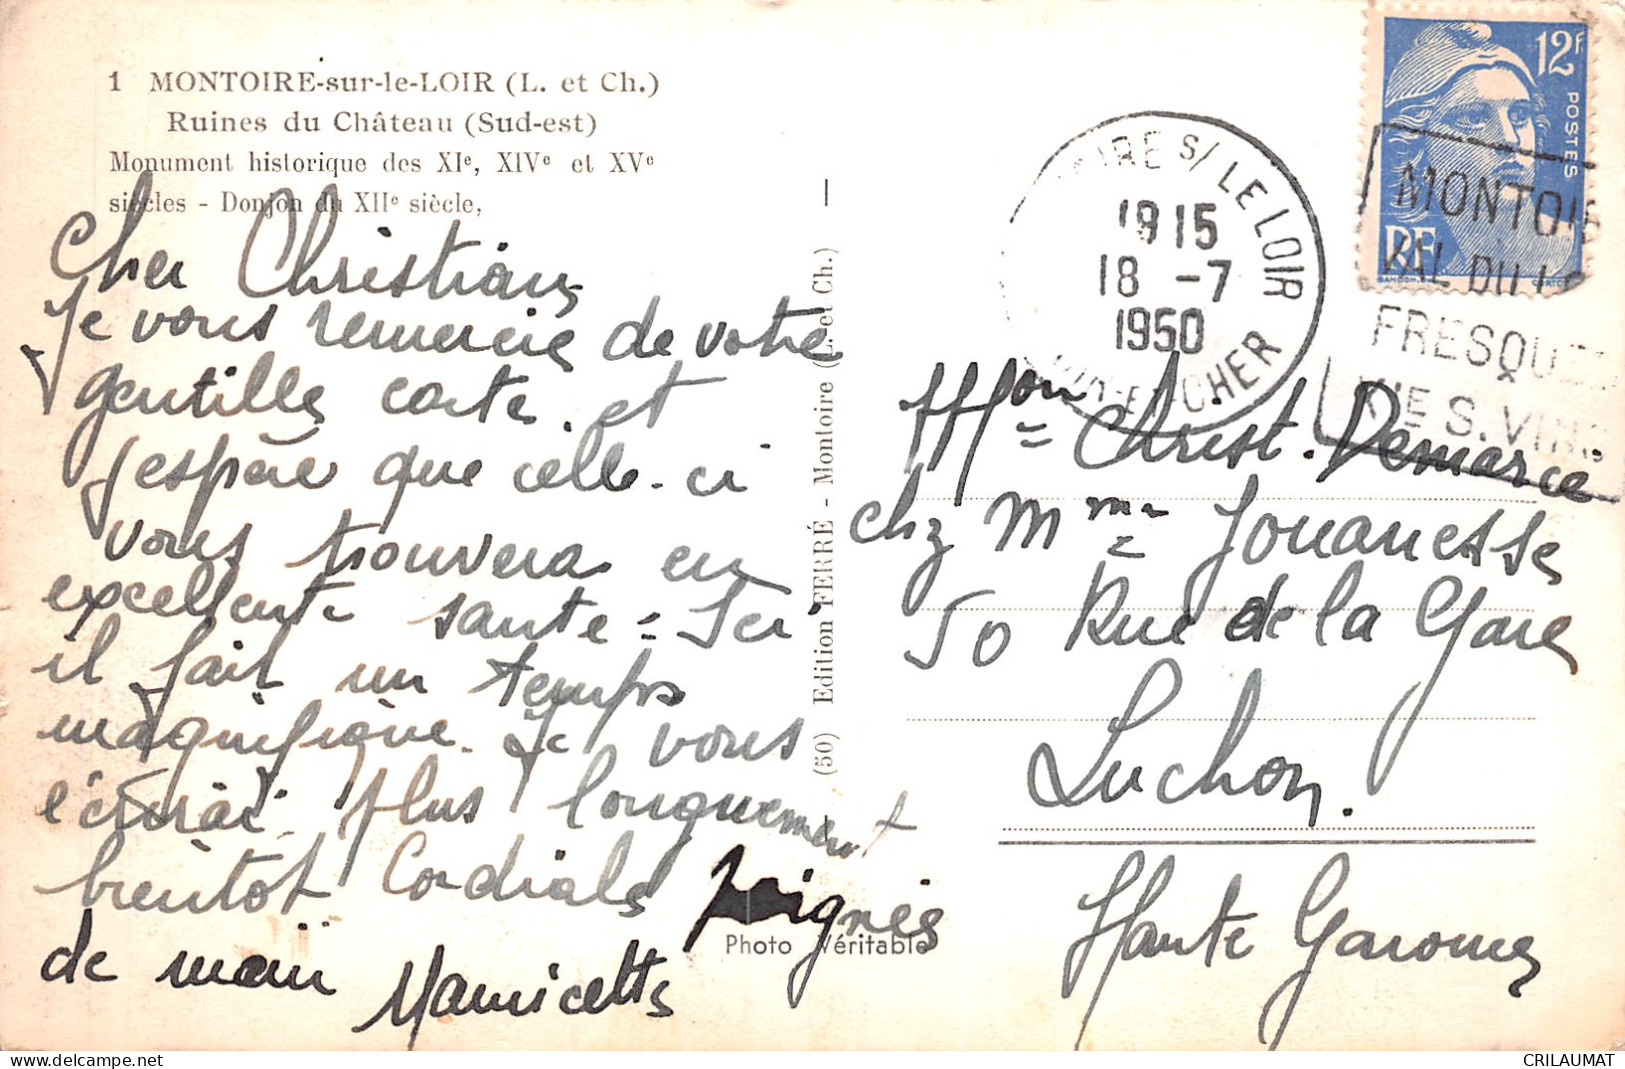 1 MONTOIRE-sur-le-LOIR (L. et Ch.)
Ruines du Château (Sud-est)
Monument historique des XIe, XIVe et XVe
siècles - Donjon du XIIe siècle,
Cher Christian
Je vous remercie de votre
gentille carte et
j'espère que celle-ci
vous trouvera en
excellente sante = Ici
il fait un temps
magnifique. Je vous
écrirai plus longuement
bientot Cordiale poignés
de main Mauricette
(50) Edition FERRÉ - Montoire (L. et Ch.)
Photo Véritable
12F
POSTES
RF
GANDON
OIRE S/ LE LOIR
1915
18 -7
1950
CHER
MONTOI
VAL DU LO
FRESQUE
XIIE S. VINC
Mon = Christ. Demarce
chz Mme = Jouanesse
50 Rue de la Gare
Luchon.
Haute Garonne
www.delcampe.net
CRILAUMAT